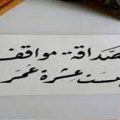 الصداقة مواقف
وليست عشرة عمر